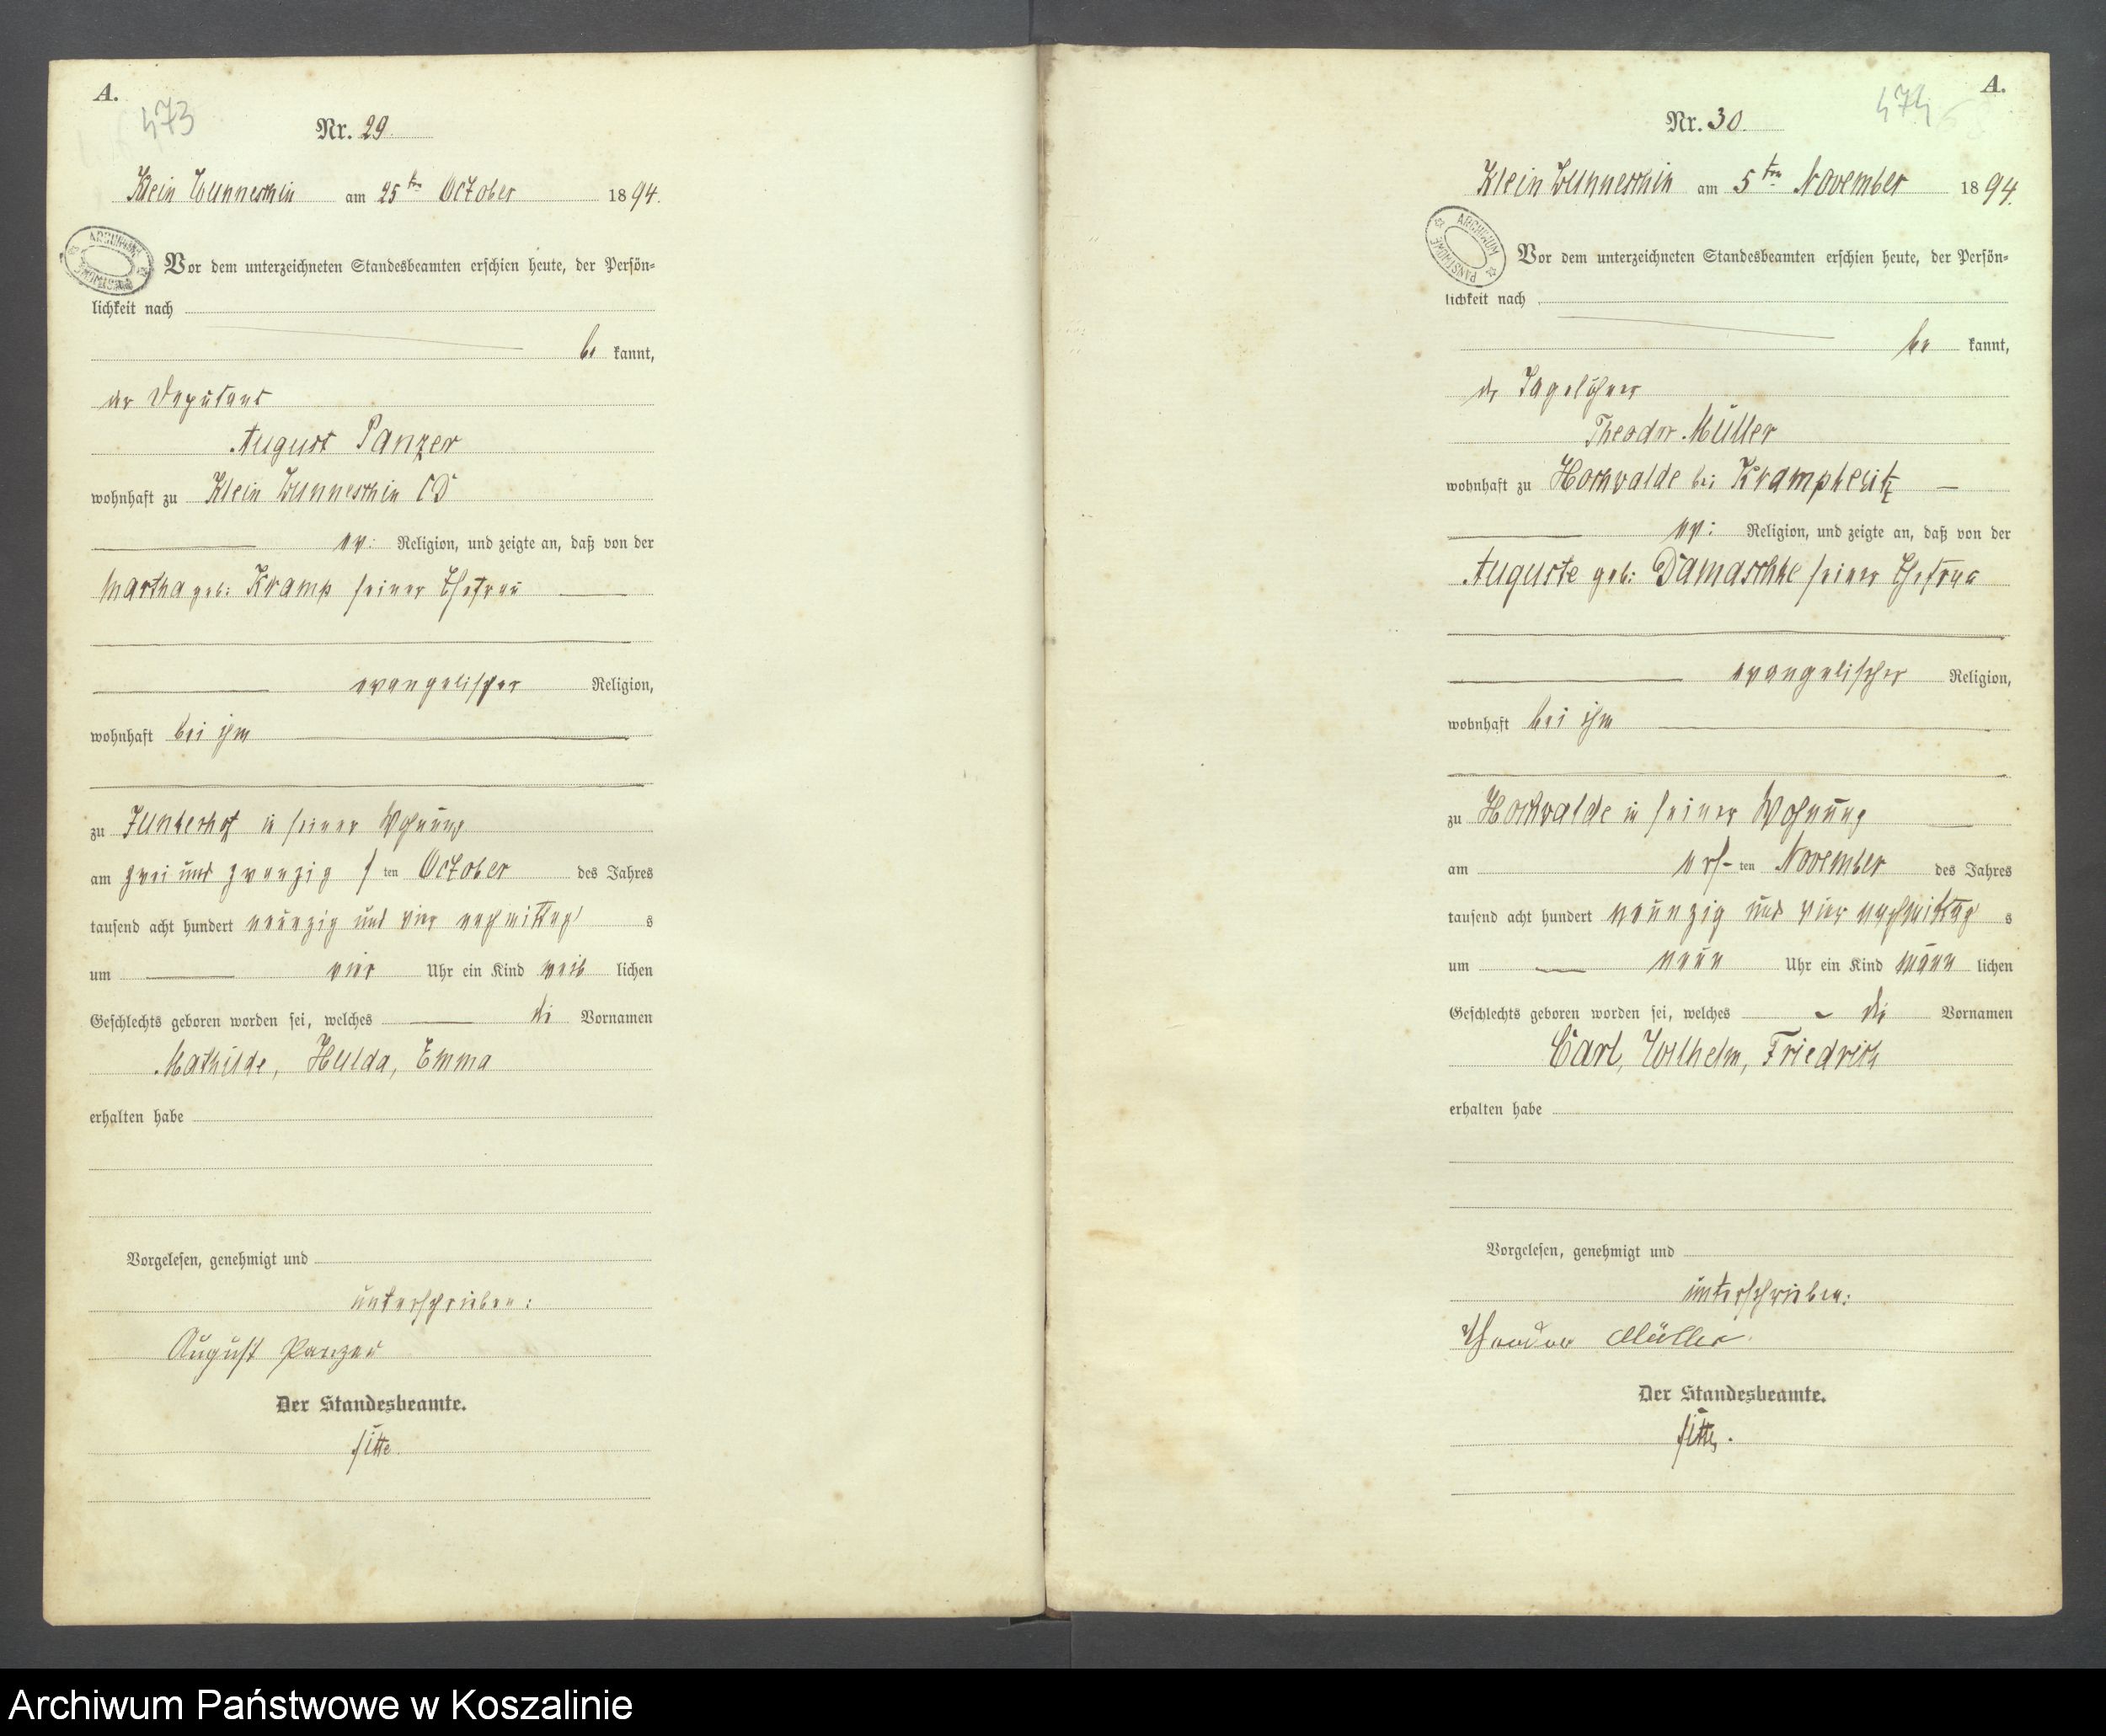 A.
473
Nr. 29.
Klein Wunneschin am 25ten October 1894.
ARCHIWUM PAŃSTWOWE
Vor dem unterzeichneten Standesbeamten erschien heute, der Persön=
lichkeit nach
be kannt,
der Deputant
August Panzer
wohnhaft zu Klein Wunneschin CD
ev: Religion, und zeigte an, daß von der
Martha geb: Kramp seiner Ehefrau
evangelischer Religion,
wohnhaft bei ihm
zu Junkerhof in seiner Wohnung
am zwei und zwanzigsten October des Jahres
tausend acht hundert neunzig und vier nachmittags
um vier Uhr ein Kind weiblichen
Geschlechts geboren worden sei, welches die Vornamen
Mathilde, Hulda, Emma
erhalten habe
Vorgelesen, genehmigt und
unterschrieben:
August Panzer
Der Standesbeamte.
A.
474
Nr. 30.
Klein Wunneschin am 5ten November 1894.
ARCHIWUM PAŃSTWOWE
Vor dem unterzeichneten Standesbeamten erschien heute, der Persön=
lichkeit nach
be kannt,
der Tagelöhner
Theodor Müller
wohnhaft zu Hochwalde bei Krampkewitz
ev: Religion, und zeigte an, daß von der
Auguste geb: Damaschke seiner Ehefrau
evangelischer Religion,
wohnhaft bei ihm
zu Hochwalde in seiner Wohnung
am ersten November des Jahres
tausend acht hundert neunzig und vier nachmittags
um neun Uhr ein Kind männlichen
Geschlechts geboren worden sei, welches die Vornamen
Carl, Wilhelm, Friedrich
erhalten habe
Vorgelesen, genehmigt und
unterschrieben:
Theodor Müller.
Der Standesbeamte.
Archiwum Państwowe w Koszalinie